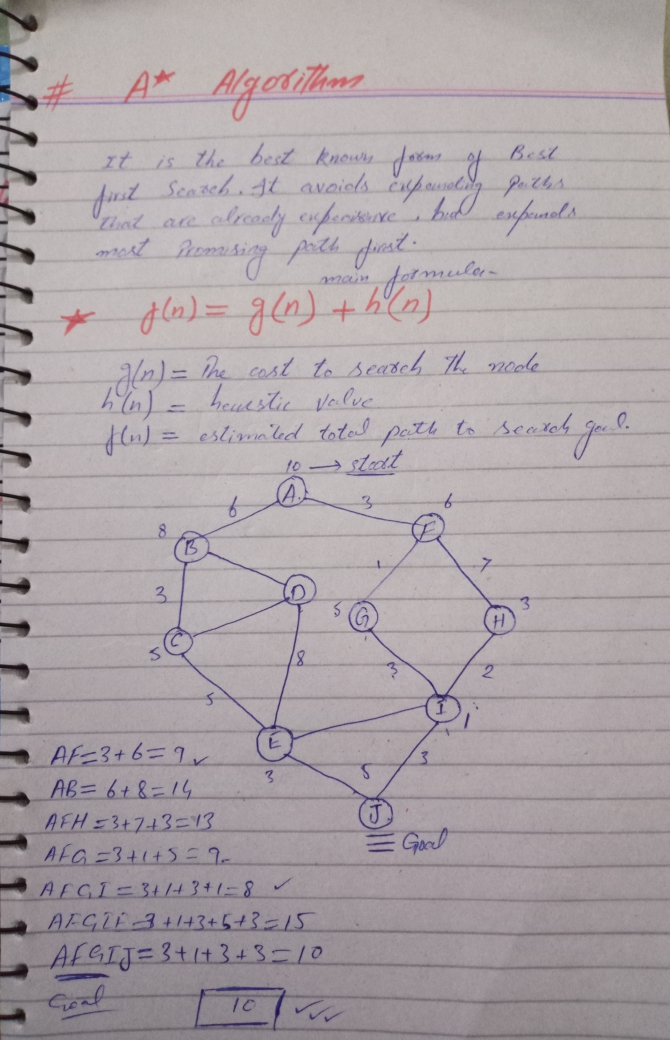 # A* Algorithm
It is the best known form of Best
first Search. It avoids expanding paths
that are already expensive, but expands
most Promising path first.
main formula-
* f(n) = g(n) + h(n)
g(n) = The cost to search The node
h(n) = heuestic value
f(n) = estimated total path to search goal.
10 → start
A
6
3
6
8
B
F
1
7
D
3
5
G
H
3
C
5
8
3
2
5
I
1
E
3
5
3
J
Goal
AF=3+6=9 ✓
AB= 6+8=14
AFH =3+7+3=13
AFG =3+1+5=9
AFGI =3+1+3+1=8 ✓
AFGIE=3+1+3+5+3=15
AFGIJ=3+1+3+3=10
Goal
10 ✓✓✓